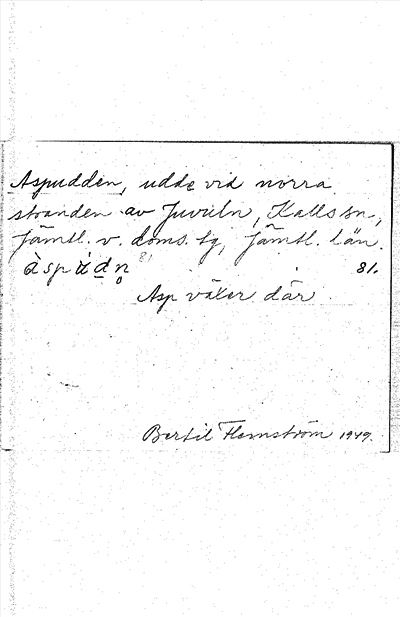 Aspudden, udde vid norra
stranden av Juveln, Kalls sn,
Jämtl. v. doms. tg, Jämtl. län.
àspùdn̥ 81 81.
Asp växer där
Bertil Flemström 1949.